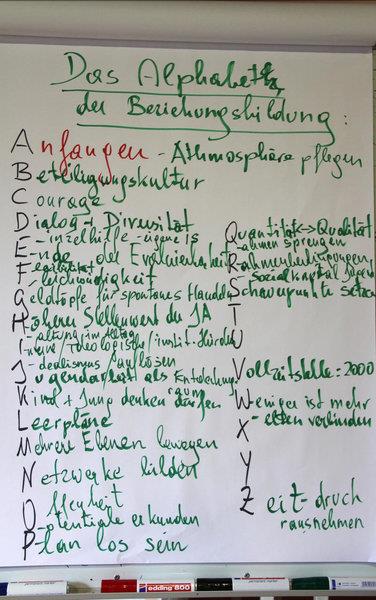 Das Alphabet
der Beziehungsbildung:
Anfangen - Athmosphäre pflegen
Beteiligungskultur
Courage
Dialog + Diversität
Ende der Evaluierbarkeit
- leichwürdigkeit
Geldtöpfe für spontanes Handeln
Höherer Stellenwert der JA
- dealismus auflösen
Jugendarbeit als Entdeckungsraum
Kind + Jung denken dürfen
Leerpläne
Mehrere Ebenen bewegen
Netzwerke bilden
Offenheit
Potentiale erkunden
Plan los sein
Quantität <-> Qualität
Rahmen sprengen
Rahmenbedingungen
Schwerpunkte setzen
T
U
Vollzeitstelle = 2000
Weniger ist mehr
- elten verbinden
X
Y
Zeit-druck
rausnehmen
edding 800